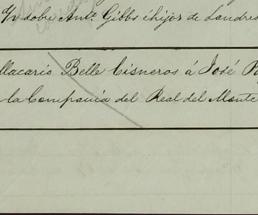 sobre Ant.º Gibbs é hijos de Londres
Macario Belle Cisneros á José
la Compañía del Real del Monte